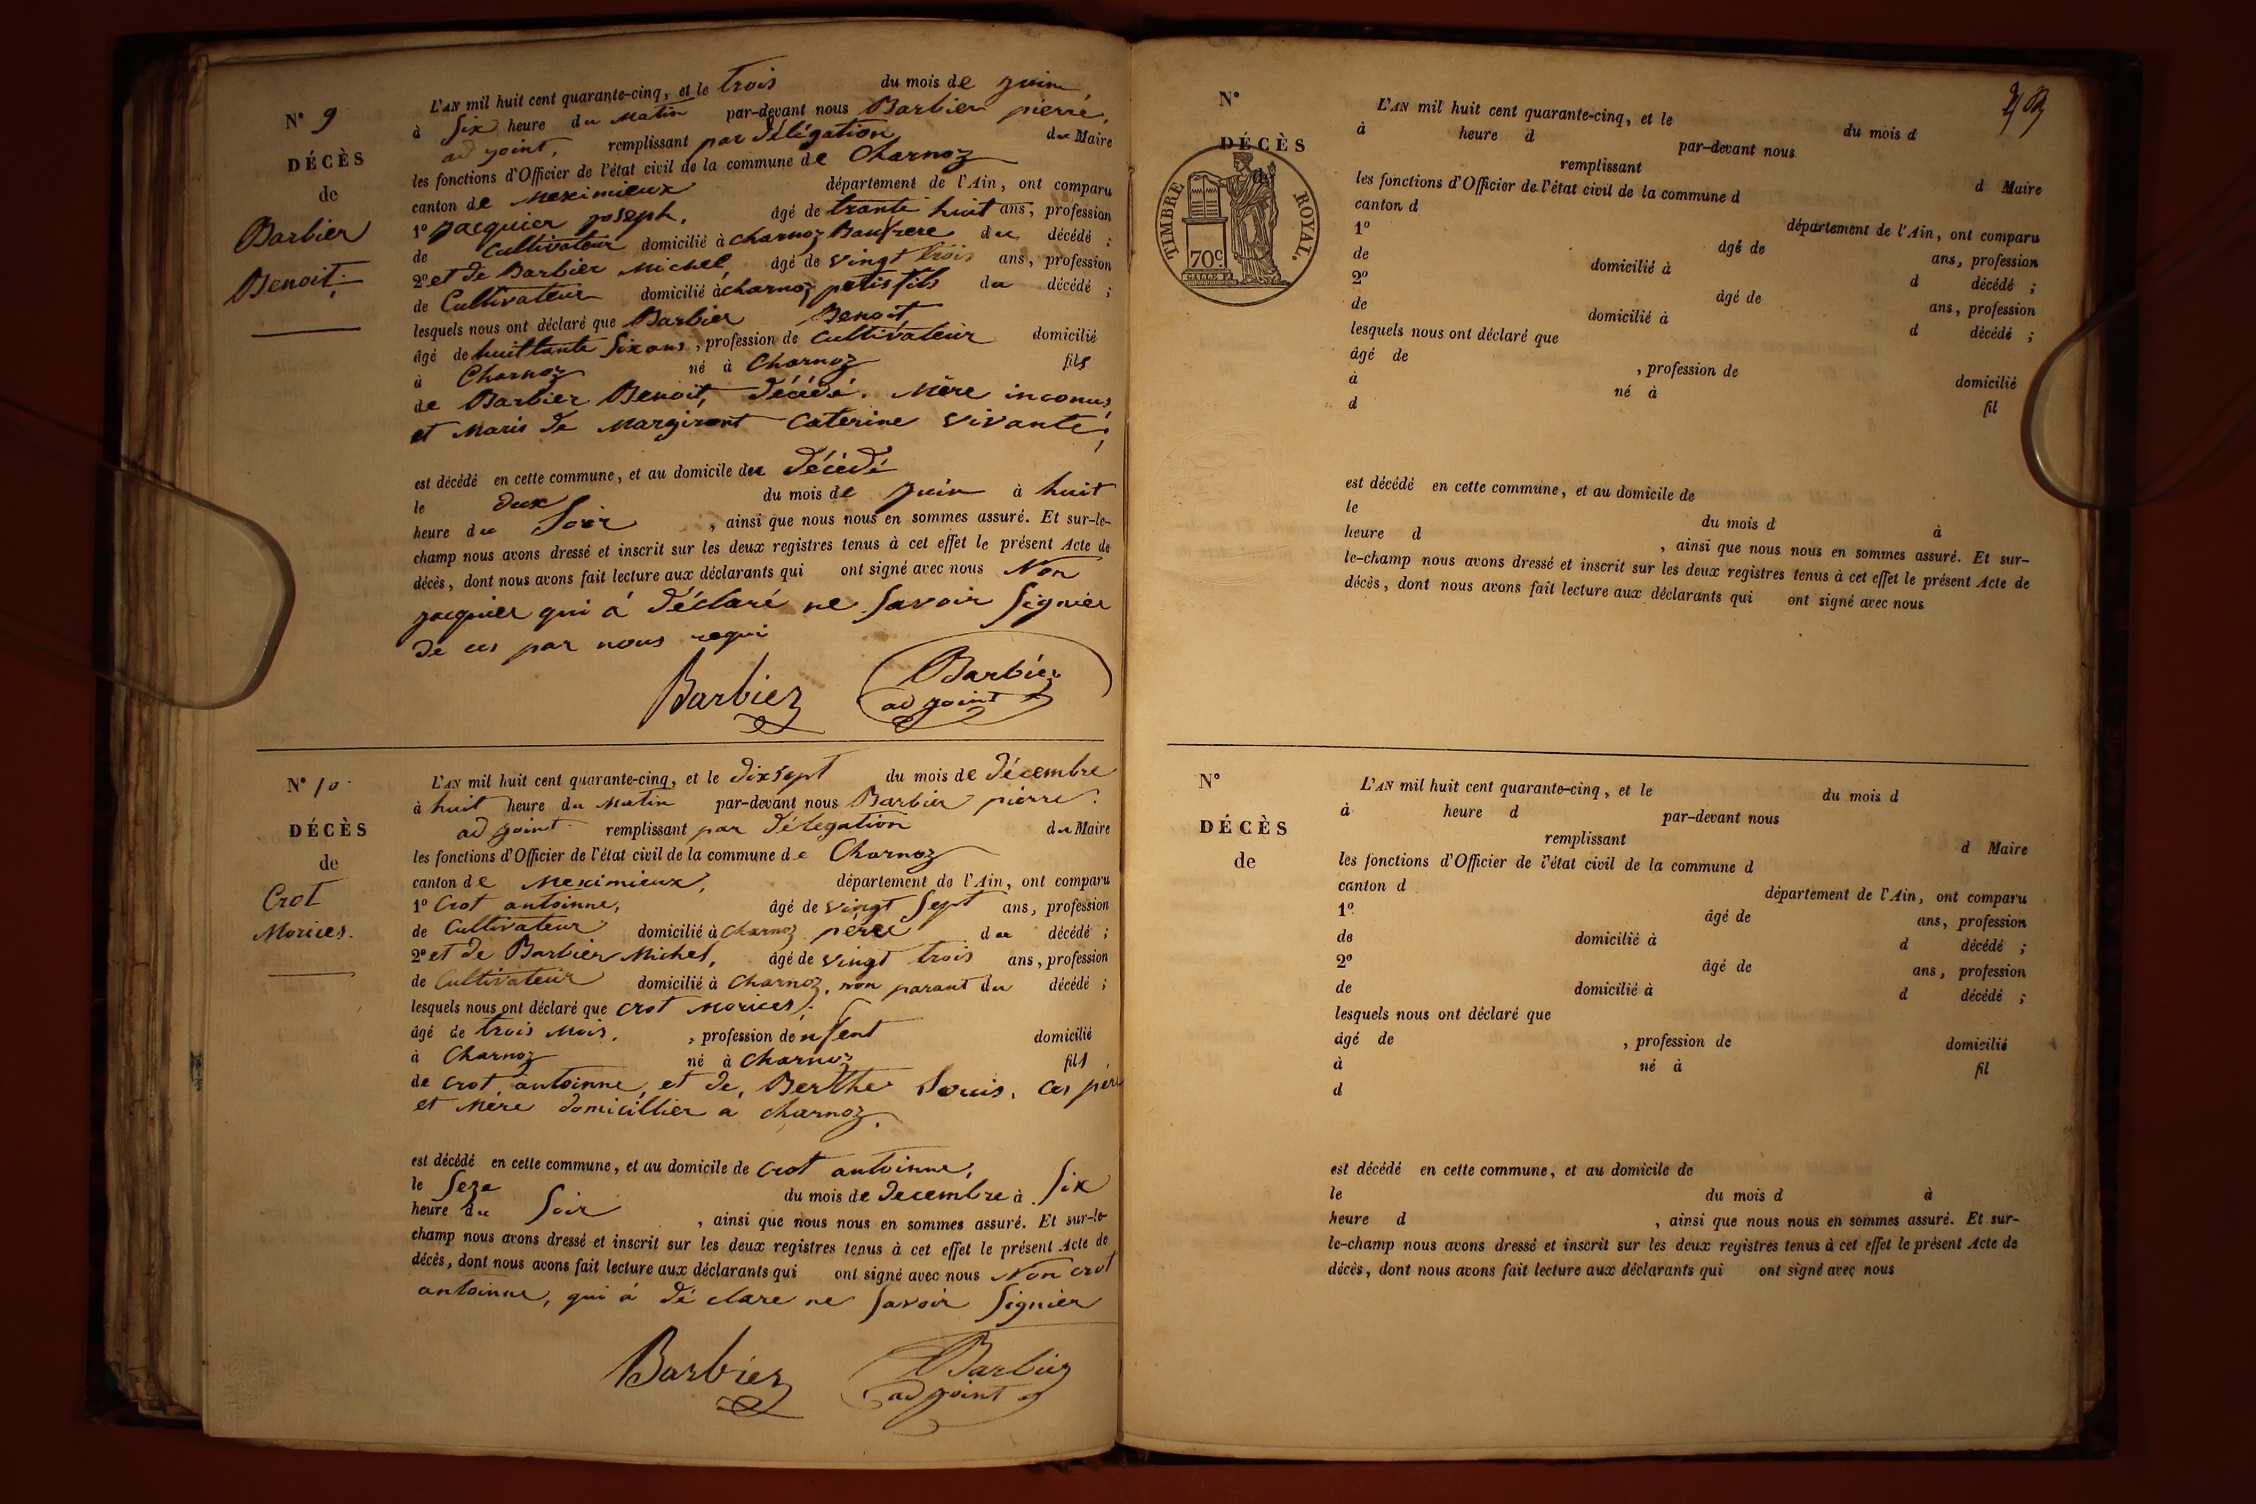 N° 9
DÉCÈS
de
Barbier
Benoit
L'AN mil huit cent quarante-cinq, et le trois du mois de juin
à Six heure du Matin par-devant nous Barbier pierre,
ad joint, remplissant par délégation du Maire
les fonctions d'Officier de l'état civil de la commune de Charnoz
canton de Meximieux département de l'Ain, ont comparu
1° jacquier joseph, âgé de trante huit ans, profession
de Cultivateur domicilié à charnoz Baufrere du décédé ;
2° et de Barbier Michel, âgé de vingt trois ans, profession
de Cultivateur domicilié à charnoz petis fils du décédé ;
lesquels nous ont déclaré que Barbier Benoit
âgé de huittante Six ans, profession de Cultivateur domicilié
à Charnoz né à Charnoz fils
de Barbier Benoit, décédé. Mère inconus,
et Maris de Margiront Caterine vivante;
est décédé en cette commune, et au domicile du décédé
le deux du mois de juin à huit
heure du Soir , ainsi que nous nous en sommes assuré. Et sur-le-
champ nous avons dressé et inscrit sur les deux registres tenus à cet effet le présent Acte de
décès, dont nous avons fait lecture aux déclarants qui ont signé avec nous Non
jacquier qui á déclaré ne Savoir Signier
de ces par nous requi
Barbier Barbier
ad joint
N° 10
DÉCÈS
de
Crot
Morices.
L'AN mil huit cent quarante-cinq, et le dixsept du mois de décembre
à huit heure du Matin par-devant nous Barbier pierre.
ad joint remplissant par délégation du Maire
les fonctions d'Officier de l'état civil de la commune de Charnoz
canton de Meximieux, département de l'Ain, ont comparu
1° Crot antoinne, âgé de vingt Sept ans, profession
de Cultivateur domicilié à Charnoz père du décédé ;
2° et de Barbier Michel, âgé de vingt trois ans, profession
de Cultivateur domicilié à Charnoz, non parant du décédé ;
lesquels nous ont déclaré que Crot Morices.
âgé de trois Mois. , profession denfent domicilié
à Charnoz né à Charnoz fils
de Crot antoinne, et de, Berthe Louis, ces père
et Mère domicillier a charnoz.
est décédé en cette commune, et au domicile de Crot antoinne,
le Seze du mois de decembre à Six
heure du Soir , ainsi que nous nous en sommes assuré. Et sur-le-
champ nous avons dressé et inscrit sur les deux registres tenus à cet effet le présent Acte de
décès, dont nous avons fait lecture aux déclarants qui ont signé avec nous Non crot
antoinne, qui á dé clare ne Savoir Signier
Barbier Barbier
ad joint
N°
DÉCÈS
TIMBRE ROYAL.
70c.
L'AN mil huit cent quarante-cinq, et le du mois d
à heure d par-devant nous
remplissant d Maire
les fonctions d'Officier de l'état civil de la commune d
canton d département de l'Ain, ont comparu
1° âgé de ans, profession
de domicilié à d décédé ;
2° âgé de ans, profession
de domicilié à d décédé ;
lesquels nous ont déclaré que
âgé de , profession de domicilié
à né à fil
d
est décédé en cette commune, et au domicile de
le du mois d à
heure d , ainsi que nous nous en sommes assuré. Et sur-
le-champ nous avons dressé et inscrit sur les deux registres tenus à cet effet le présent Acte de
décès, dont nous avons fait lecture aux déclarants qui ont signé avec nous
N°
DÉCÈS
de
L'AN mil huit cent quarante-cinq, et le du mois d
à heure d par-devant nous
remplissant d Maire
les fonctions d'Officier de l'état civil de la commune d
canton d département de l'Ain, ont comparu
1° âgé de ans, profession
de domicilié à d décédé ;
2° âgé de ans, profession
de domicilié à d décédé ;
lesquels nous ont déclaré que
âgé de , profession de domicilié
à né à fil
d
est décédé en cette commune, et au domicile de
le du mois d à
heure d , ainsi que nous nous en sommes assuré. Et sur-
le-champ nous avons dressé et inscrit sur les deux registres tenus à cet effet le présent Acte de
décès, dont nous avons fait lecture aux déclarants qui ont signé avec nous